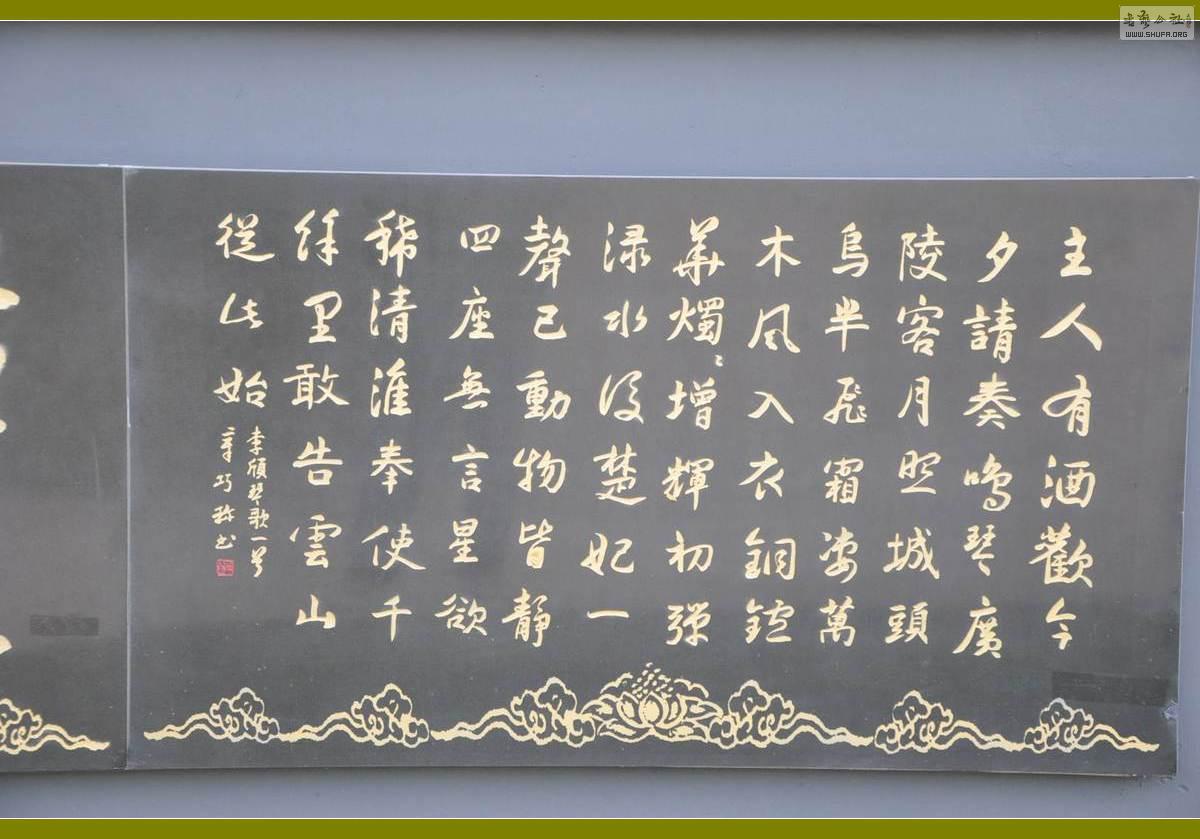 主人有酒歡今
夕請奏鳴琴廣
陵客月照城頭
烏半飛霜淒萬
木風入衣銅鑪
華燭〻增輝初彈
渌水後楚妃一
聲已動物皆靜
四座無言星欲
稀清淮奉使千
餘里敢告雲山
從此始
李頎琴歌一首
章巧珍书
书艺公社
WWW.SHUFA.ORG